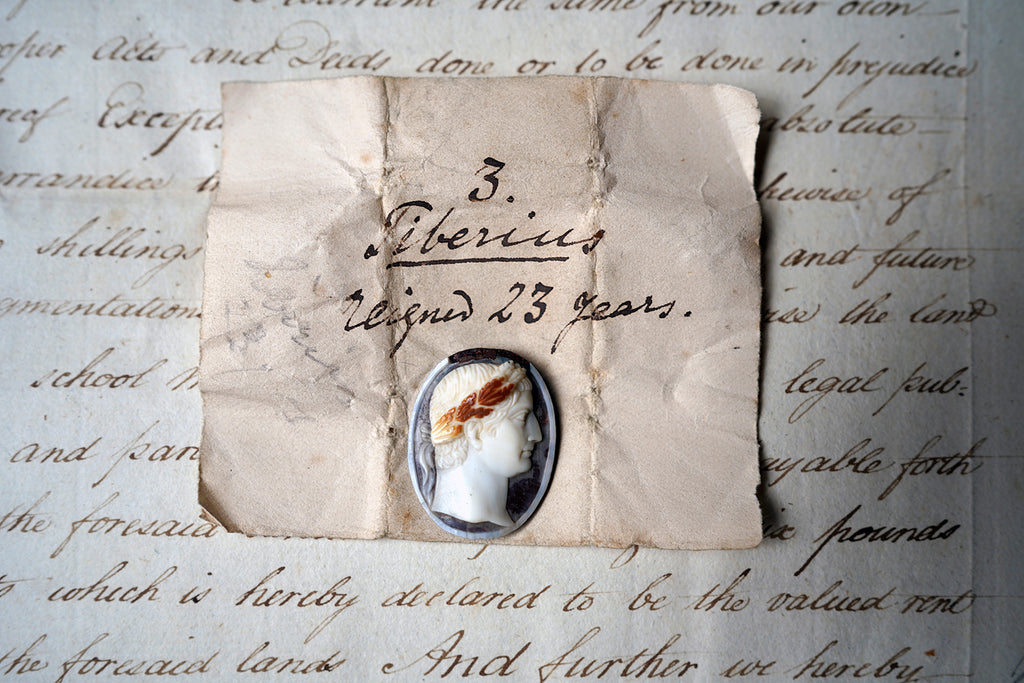 warrant the same from our own
Acts and Deeds done or to be done in prejudice
Except
absolute
3.
of
Tiberius
shillings
and future
reigned 23 years.
the land
school
legal pub:
and
forth
the foresaid
pounds
which is hereby declared to be the valued rent
the foresaid lands And further we hereby